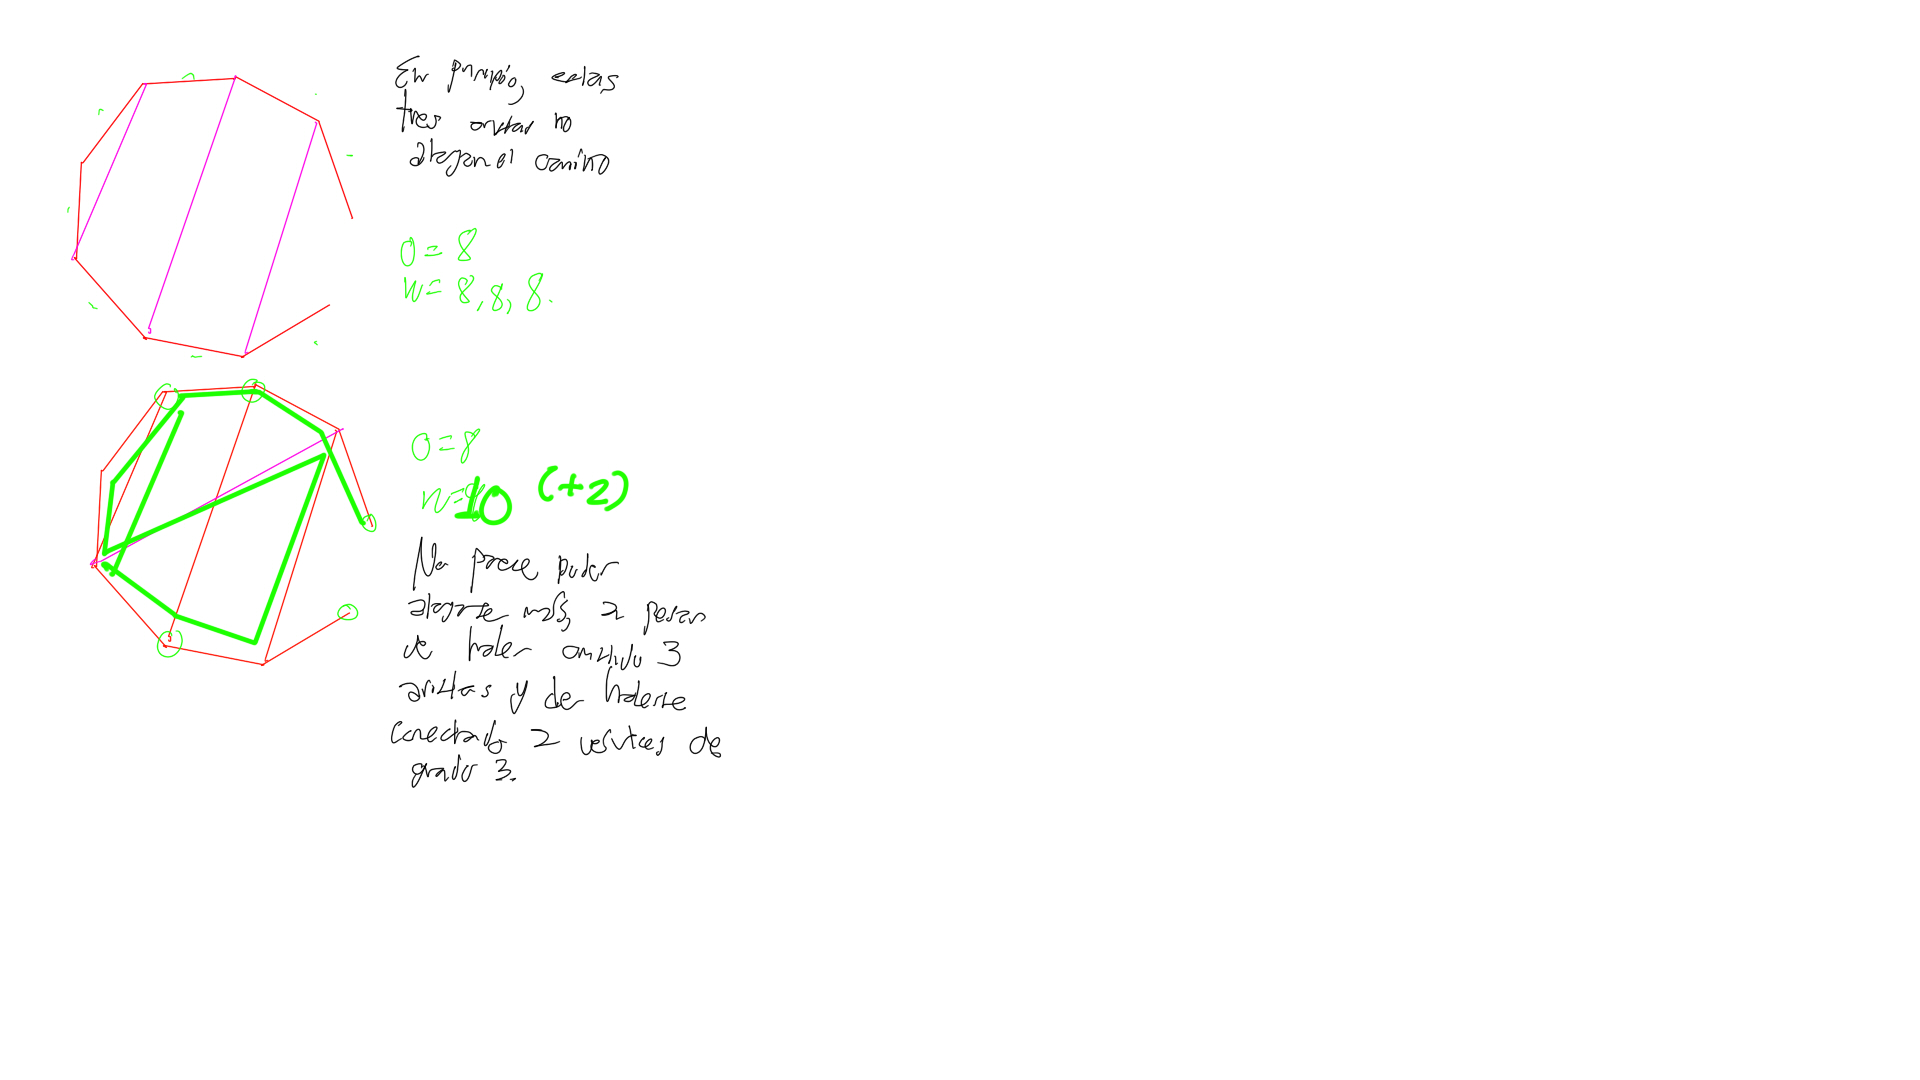 En principio, estas
tres aristas no
alargan el camino
O = 8
n = 8, 8, 8.
O = 8
n = 10 (+2)
No parece poder
alargarse más, a pesar
de haber omitido 3
aristas y de haberse
conectado 2 vértices de
grado 3.